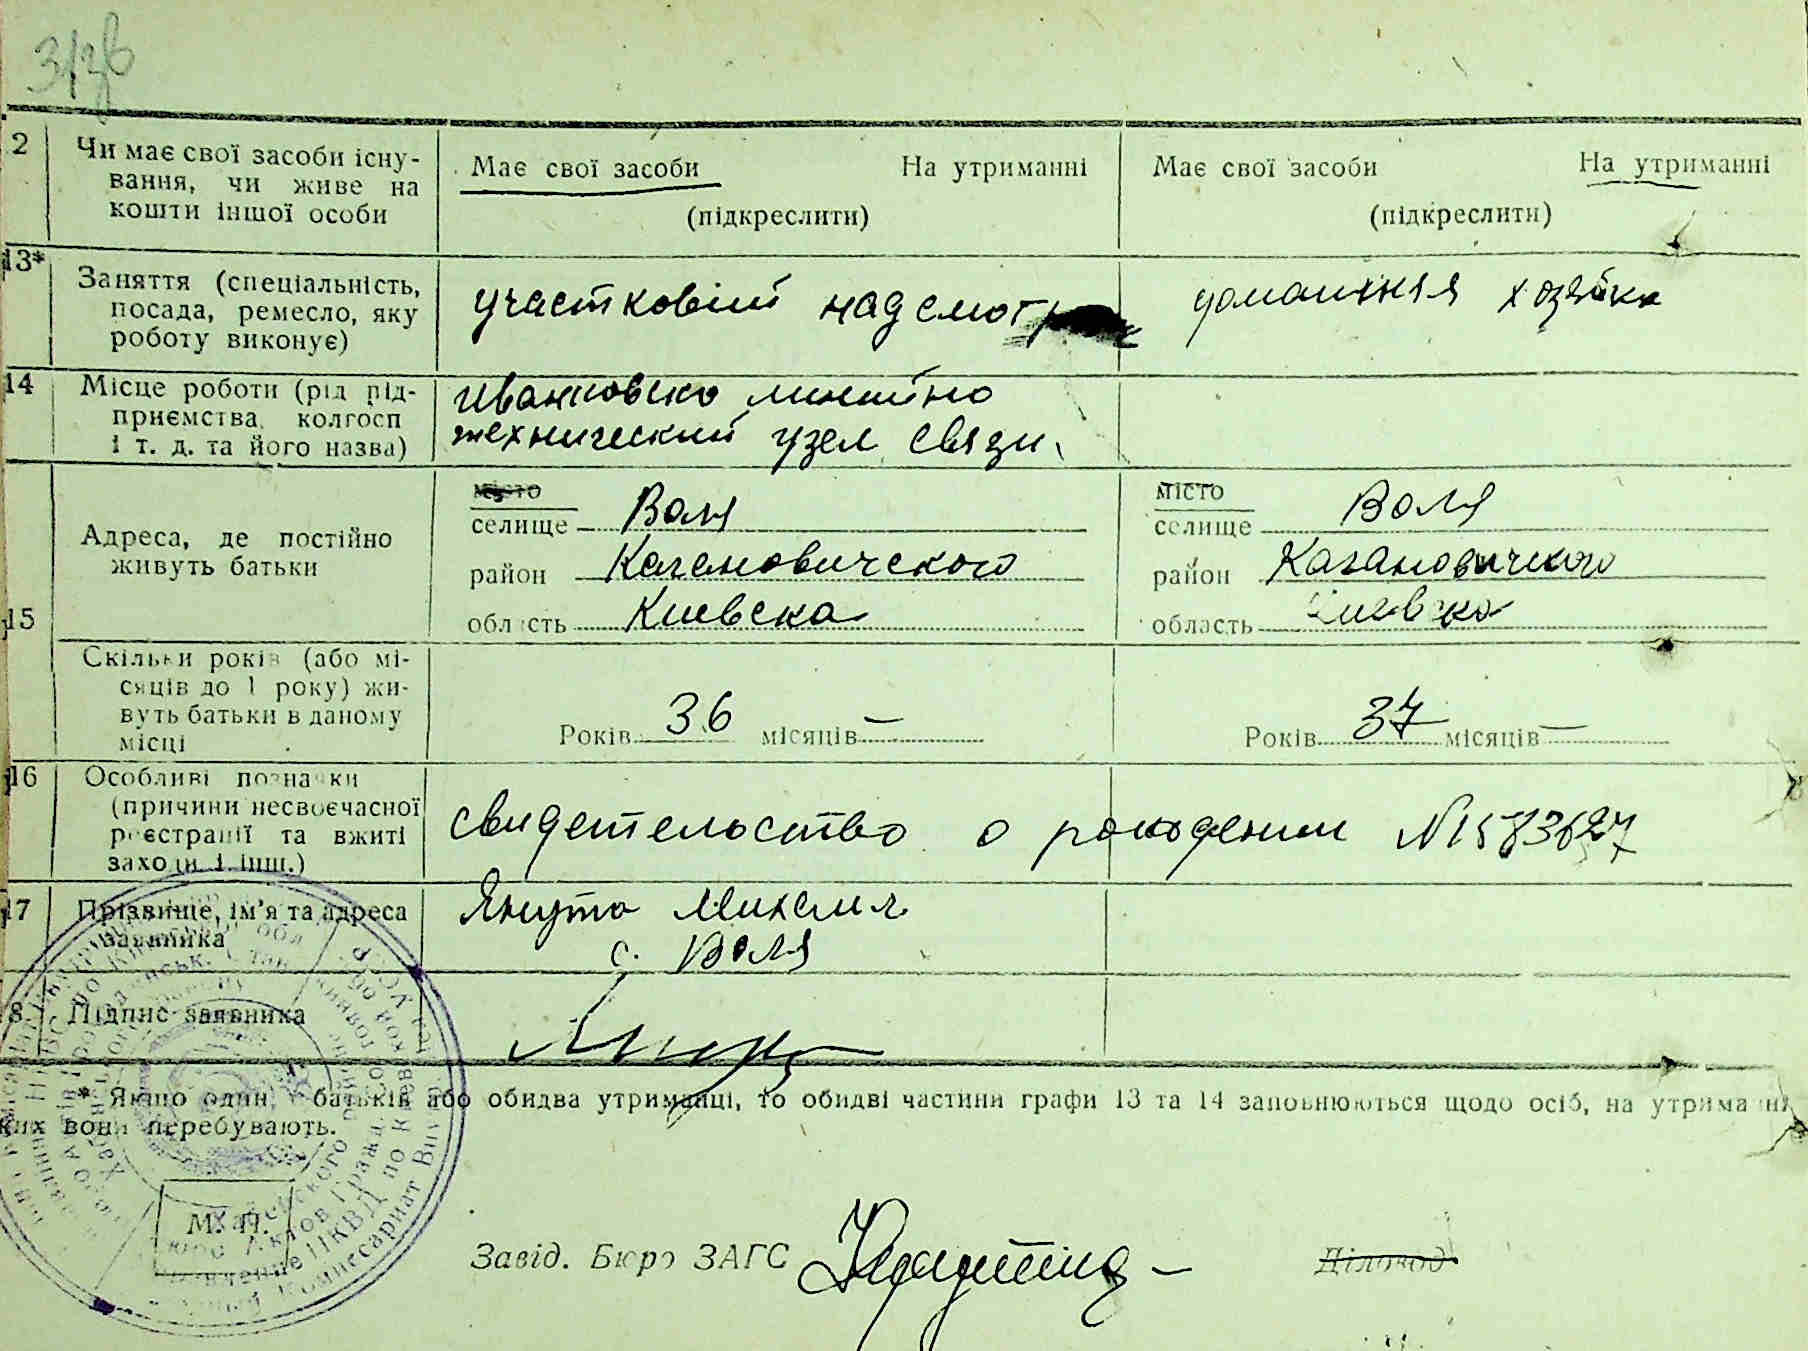 2 Чи має свої засоби існу- Має свої засоби На утриманні Має свої засоби На утриманні
вання, чи живе на
кошти іншої особи (підкреслити) (підкреслити)
13*
Заняття (спеціальність, участковий надсмотр домашняя хозяйка
посада, ремесло, яку
роботу виконує)
14 Місце роботи (рід під- Иванковско линейно
приємства, колгосп технический узел связи
і т. д. та його назва)
місто Воля місто Воля
селище селище
Адреса, де постійно
живуть батьки район Кагановичского район Кагановичского
15 область Киевска область Киевска
Скільки років (або мі-
сяців до 1 року) жи-
вуть батьки в даному
місці Років 36 місяців — Років 37 місяців —
16 Особливі позначки
(причини несвоєчасної свидетельство о рождении
реєстрації та вжиті
заходи і інш.)
17 Прізвище, ім'я та адреса Янута Михаил
заявника с. Воля
8. Підпис заявника
* Якщо один з батьків або обидва утриманці, то обидві частини графи 13 та 14 заповнюються щодо осіб, на утриманні
ких вони перебувають.
М. П.
Завід. Бюро ЗАГС Діловод